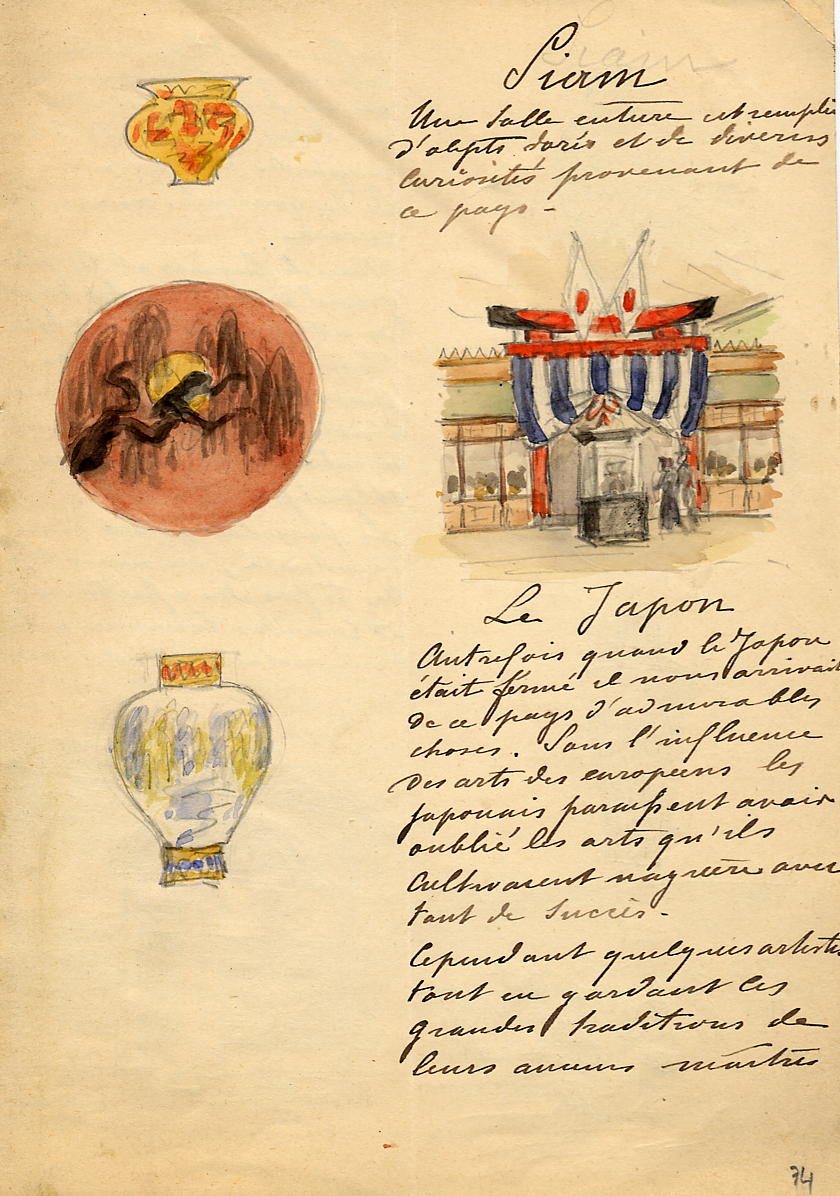 Siam
Une salle entière est remplie
d'objets dorés et de diverses
curiosités provenant de
ce pays -
Le Japon
Autrefois quand le Japon
était fermé il nous arrivait
de ce pays d'admirables
choses. Sous l'influence
des arts des européens les
japonais paraissent avoir
oublié les arts qu'ils
cultivaient naguère avec
tant de succès.
Cependant quelques artistes
tout en gardant les
grandes traditions de
leurs anciens maîtres
74